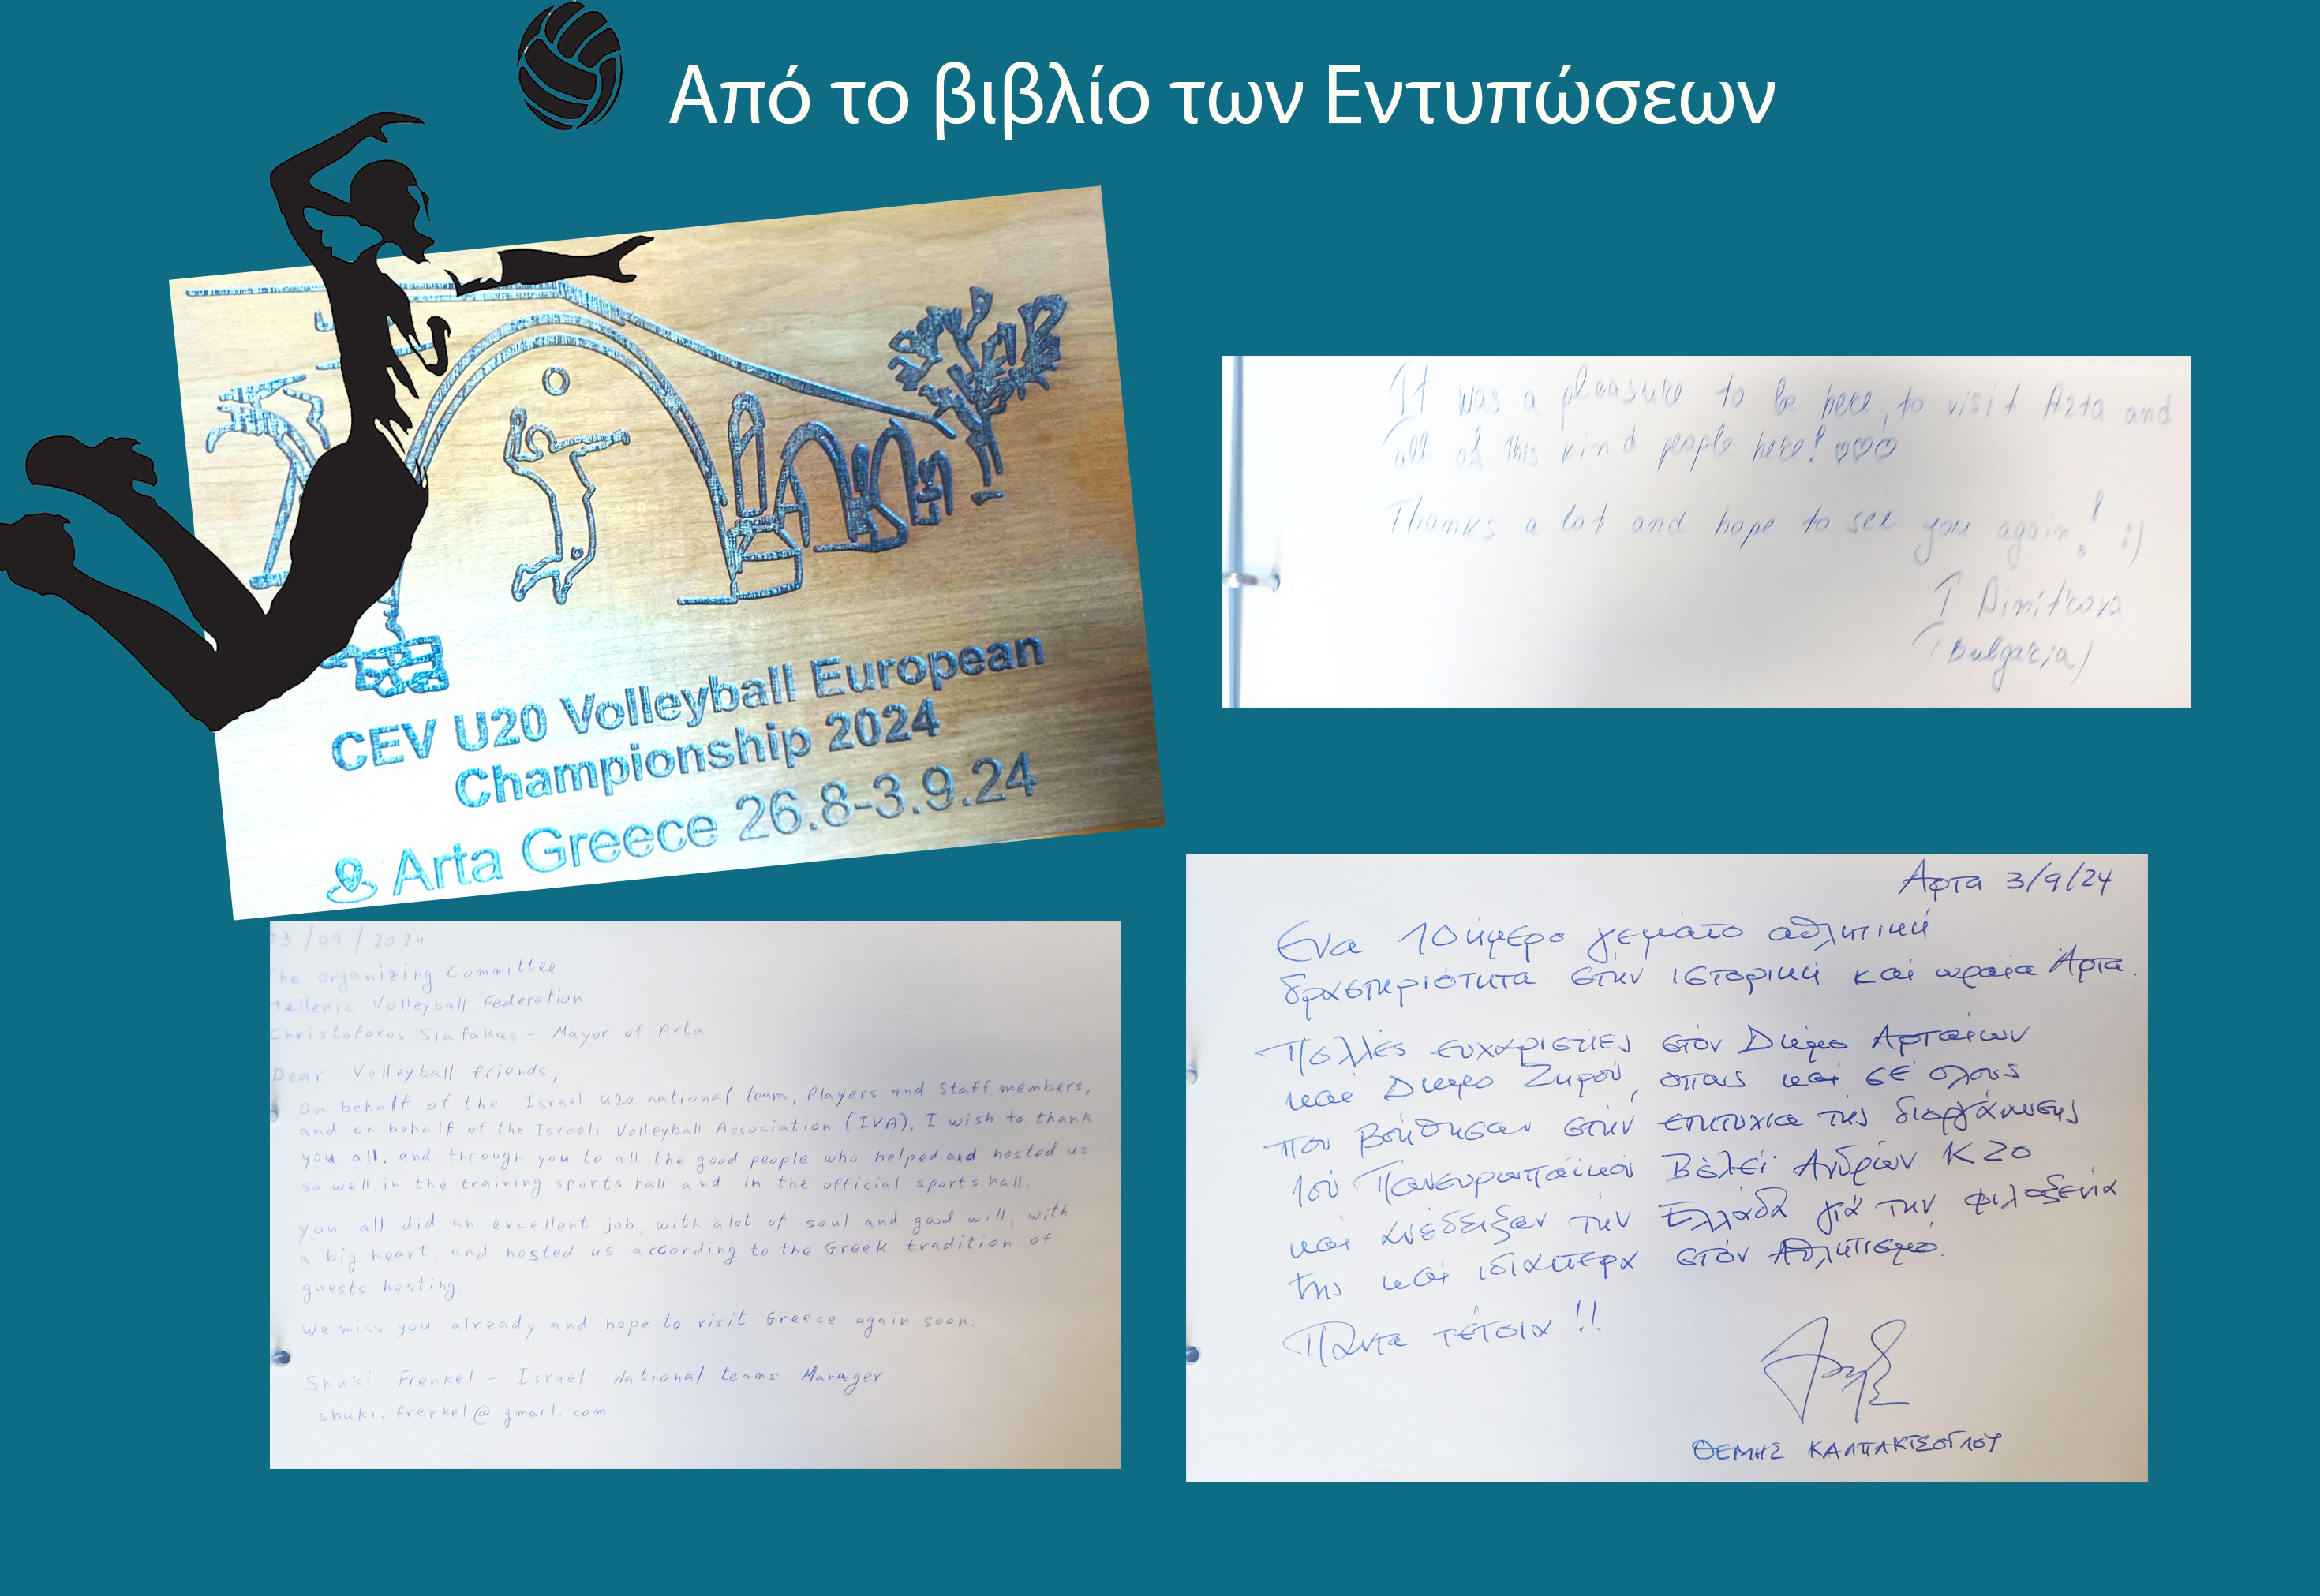 Από το βιβλίο των Εντυπώσεων
CEV U20 Volleyball European
Championship 2024
Arta Greece 26.8-3.9.24
It was a pleasure to be here, to visit Arta and
all of this kind people here! ♡♡♡
Thanks a lot and hope to see you again! :)
T Dimitrova
(Bulgaria)
03/09/2024
The Organizing Committee
Hellenic Volleyball Federation
Christoforos Siafakas - Mayor of Arta
Dear Volleyball friends,
On behalf of the Israel U20 national team, Players and Staff members,
and on behalf of the Israeli Volleyball Association (IVA), I wish to thank
you all, and through you to all the good people who helped and hosted us
so well in the training sports hall and in the official sports hall.
You all did an excellent job, with alot of soul and good will, with
a big heart, and hosted us according to the Greek tradition of
guests hosting.
We miss you already and hope to visit Greece again soon.
Shuki Frenkel - Israel National teams Manager
shuki.frenkel@gmail.com
Αρτα 3/9/24
Ενα 10ήμερο γεμάτο αθλητική
δραστηριότητα στην ιστορική και ωραία Άρτα.
Πολλές ευχαριστίες στόν Δήμο Αρταίων
και Δήμο Ζηρού, όπως και σε όλους
πού βοήθησαν στην επιτυχία της διοργάνωσης
1ού Πανευρωπαϊκού Βόλεϊ Ανδρών Κ20
και ανέδειξαν την Ελλάδα γιά την φιλοξενία
της και ιδιαίτερα στόν Αθλητισμό.
Πάντα τέτοια!!
ΘΕΜΗΣ ΚΑΛΠΑΚΤΣΟΓΛΟΥ